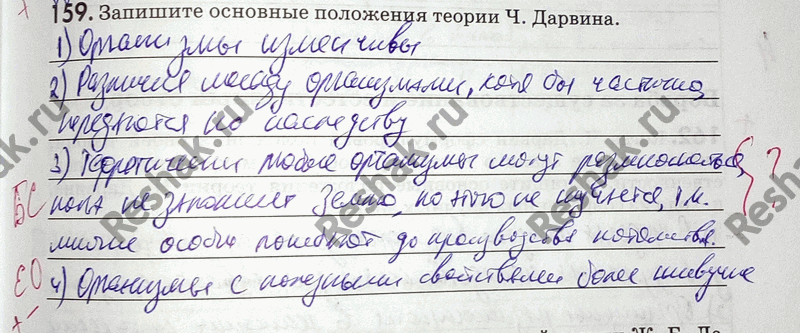 159. Запишите основные положения теории Ч. Дарвина.
1) Организмы изменчивы
2) Различия между организмами, хотя бы частично,
передаются по наследству
3) Теоретически любые организмы могут размножаться,
БС пока не заполнят Землю, но этого не случается, т.к.
многие особи погибают до производства потомства.
ЕО 4) Организмы с полезными свойствами более живучие
?
Reshak.ru
Reshak.ru
Reshak.ru
Reshak.ru
Reshak.ru